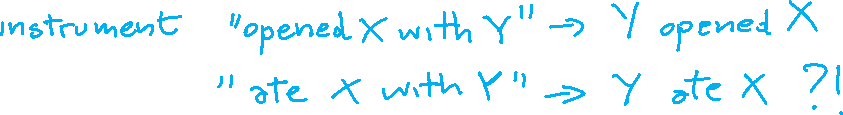 instrument "opened X with Y" → Y opened X
"ate X with Y" → Y ate X ?!